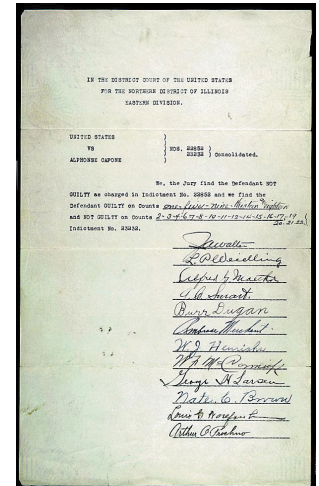 IN THE DISTRICT COURT OF THE UNITED STATES
FOR THE NORTHERN DISTRICT OF ILLINOIS
EASTERN DIVISION.
UNITED STATES )
VS ) NOS. 22852
) 23232 ) Consolidated.
ALPHONSE CAPONE )
We, the Jury find the Defendant NOT
GUILTY as charged in Indictment No. 22852 and we find the
Defendant GUILTY on Counts one-five-nine-thirteen & eighteen
and NOT GUILTY on Counts 2-3-4-6-7-8-10-11-12-14-15-16-17-19
20-21-22
Indictment No. 23232.
L.P. Weidling
A. C. Smart.
Burr Dugan
Ambrose Merchant
W. J. Hemicker
W. F. McCormick
George H Larsen
Nate C. Brown
Louis G
Arthur O Prochno